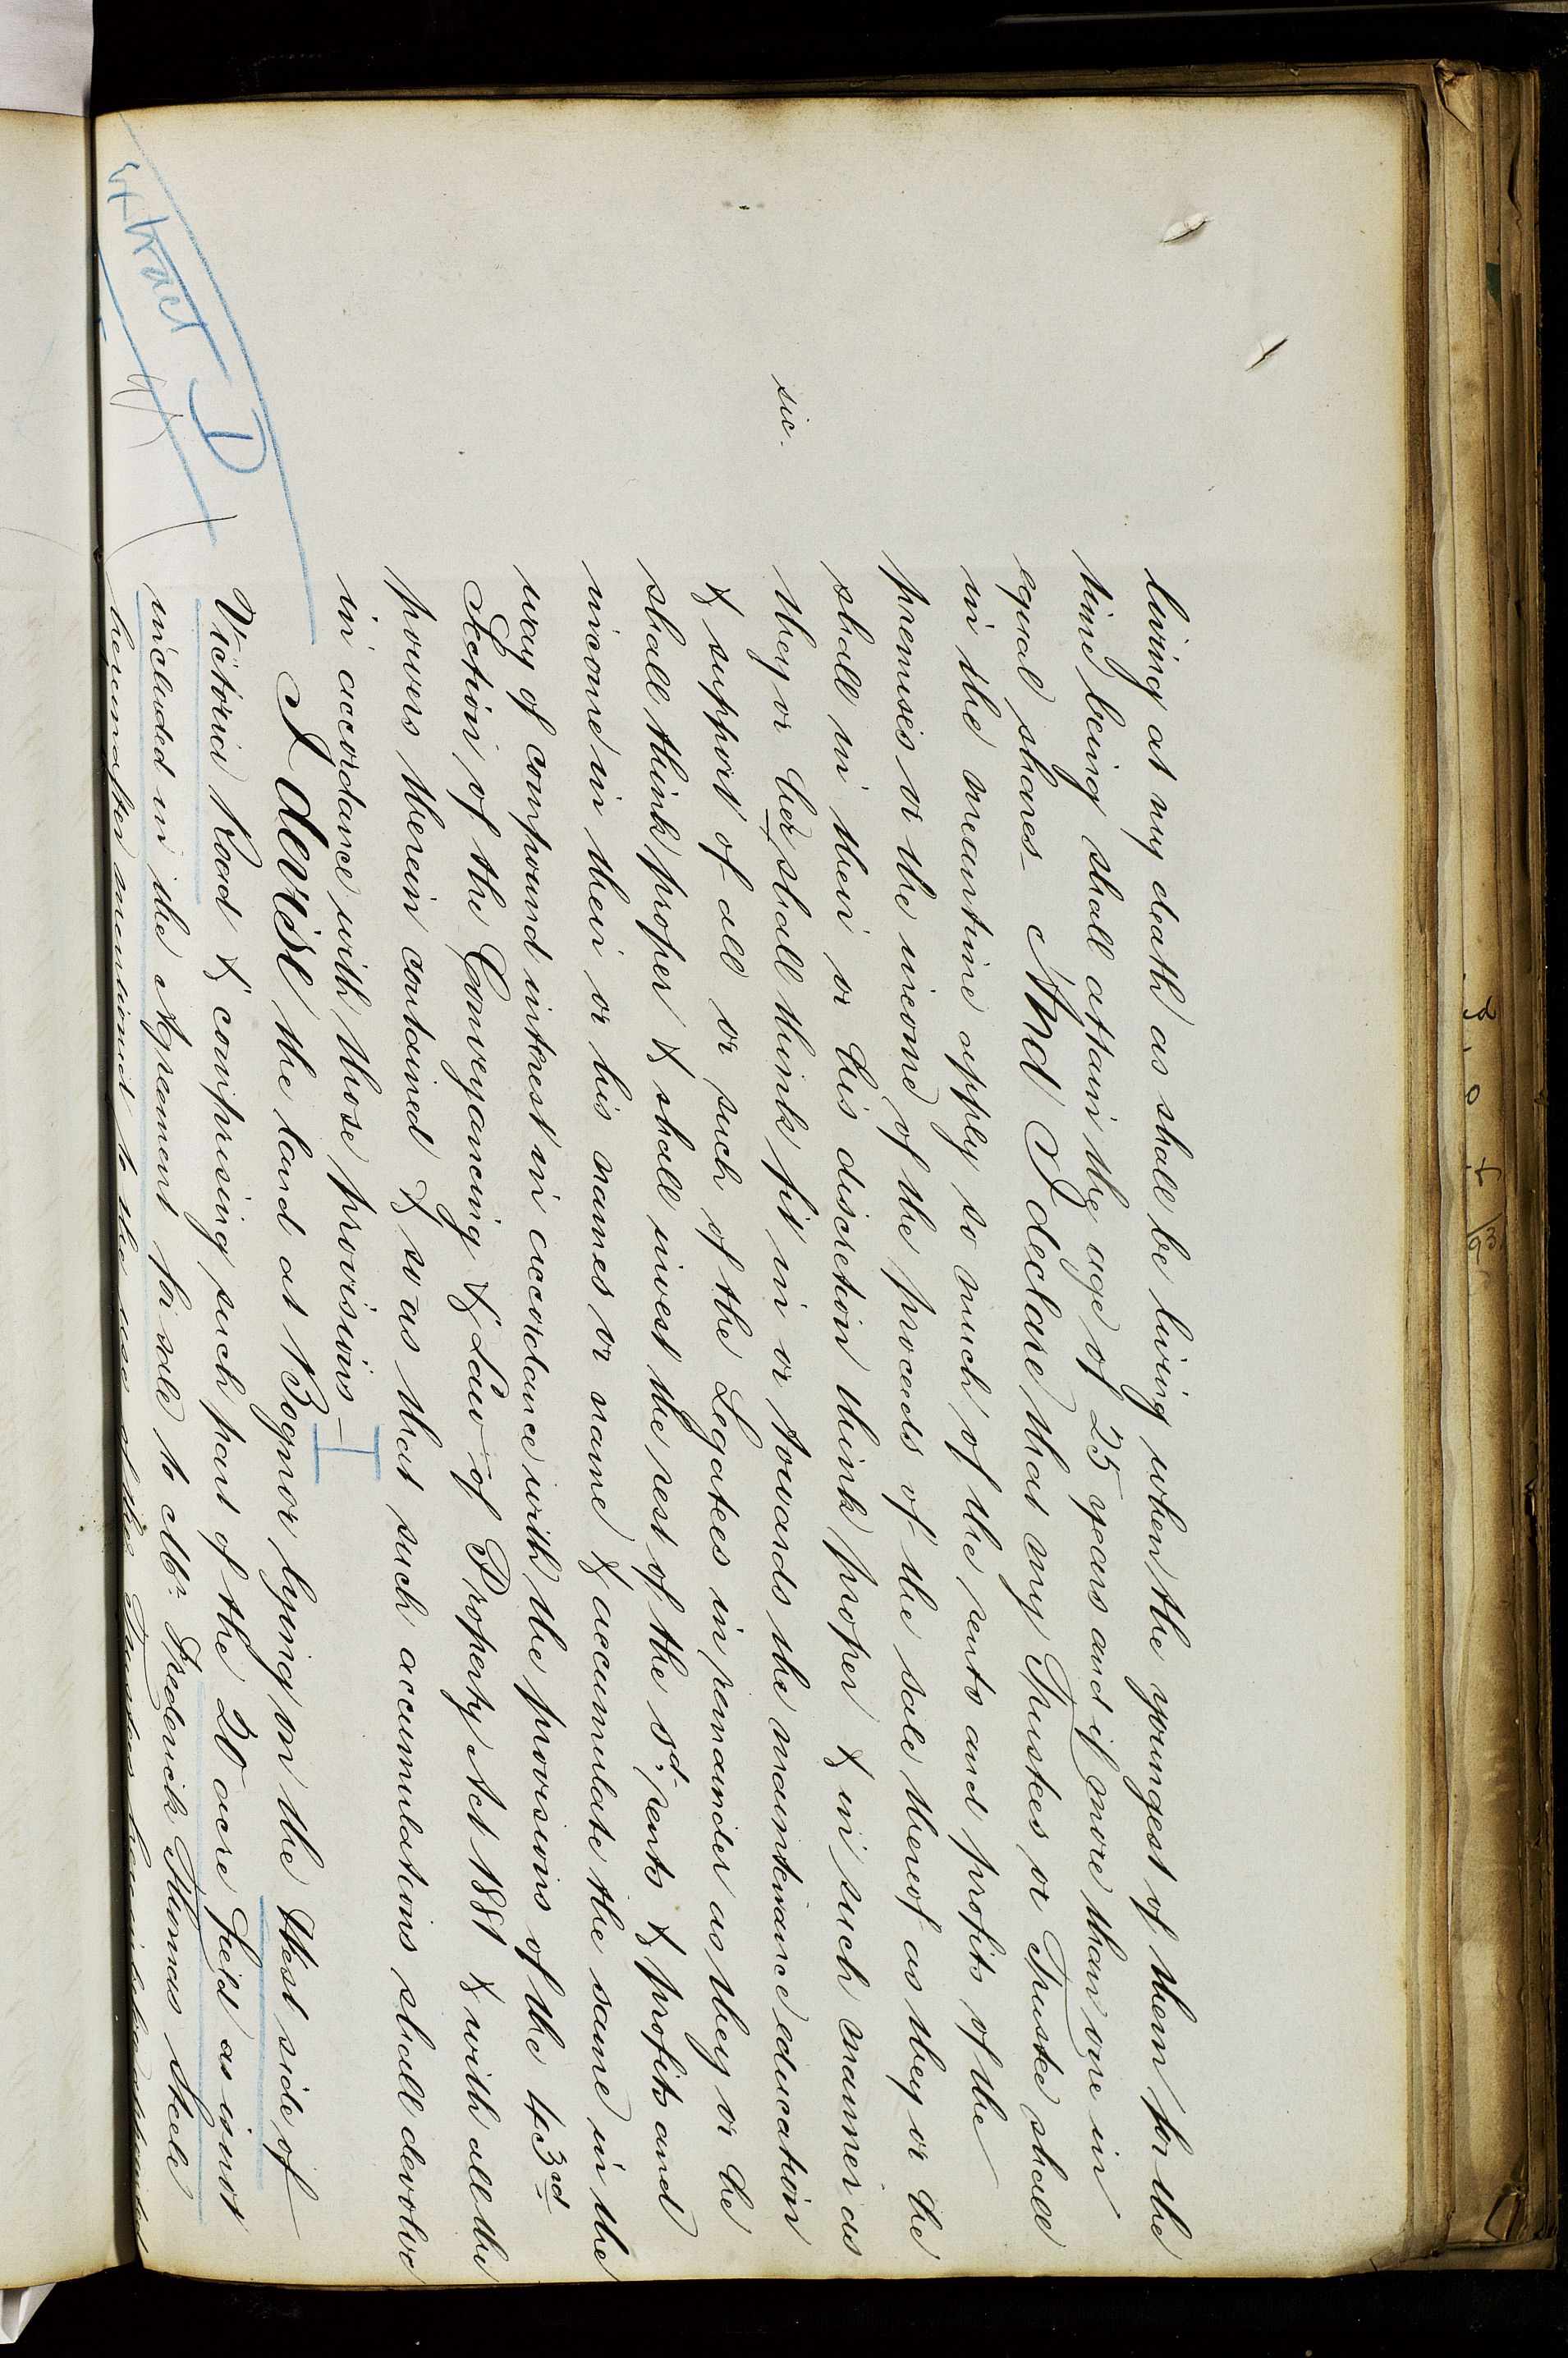 living at my death as shall be living when the youngest of them for the
time being shall attain the age of 25 years and if more than one in
equal shares - And I declare that my Trustees or Trustee shall
in the meantime apply so much of the rents and profits of the
premises or the income of the proceeds of the sale thereof as they or he
shall in their or his discretion think proper & in such manner as
sic. they or her shall think fit in or towards the maintenance education
& support of all or such of the Legatees in remainder as they or he
shall think proper & shall invest the rest of the sd. rents & profits and
income in their or his names or name & accumulate the same in the
way of compound interest in accordance with the provisions of the 43rd
Section of the Conveyancing & Law of Property Act 1881 & with all the
powers therein contained & so as that such accumulations shall devolve
in accordance with those provisions -
Extract I
I devise the land at Bognor lying on the West side of
Victoria Road & comprising such part of the 20 acre field as is not
included in the Agreement for sale to Mr. Frederick Thomas Steele
hereinafter mentioned to the use of the Trustees